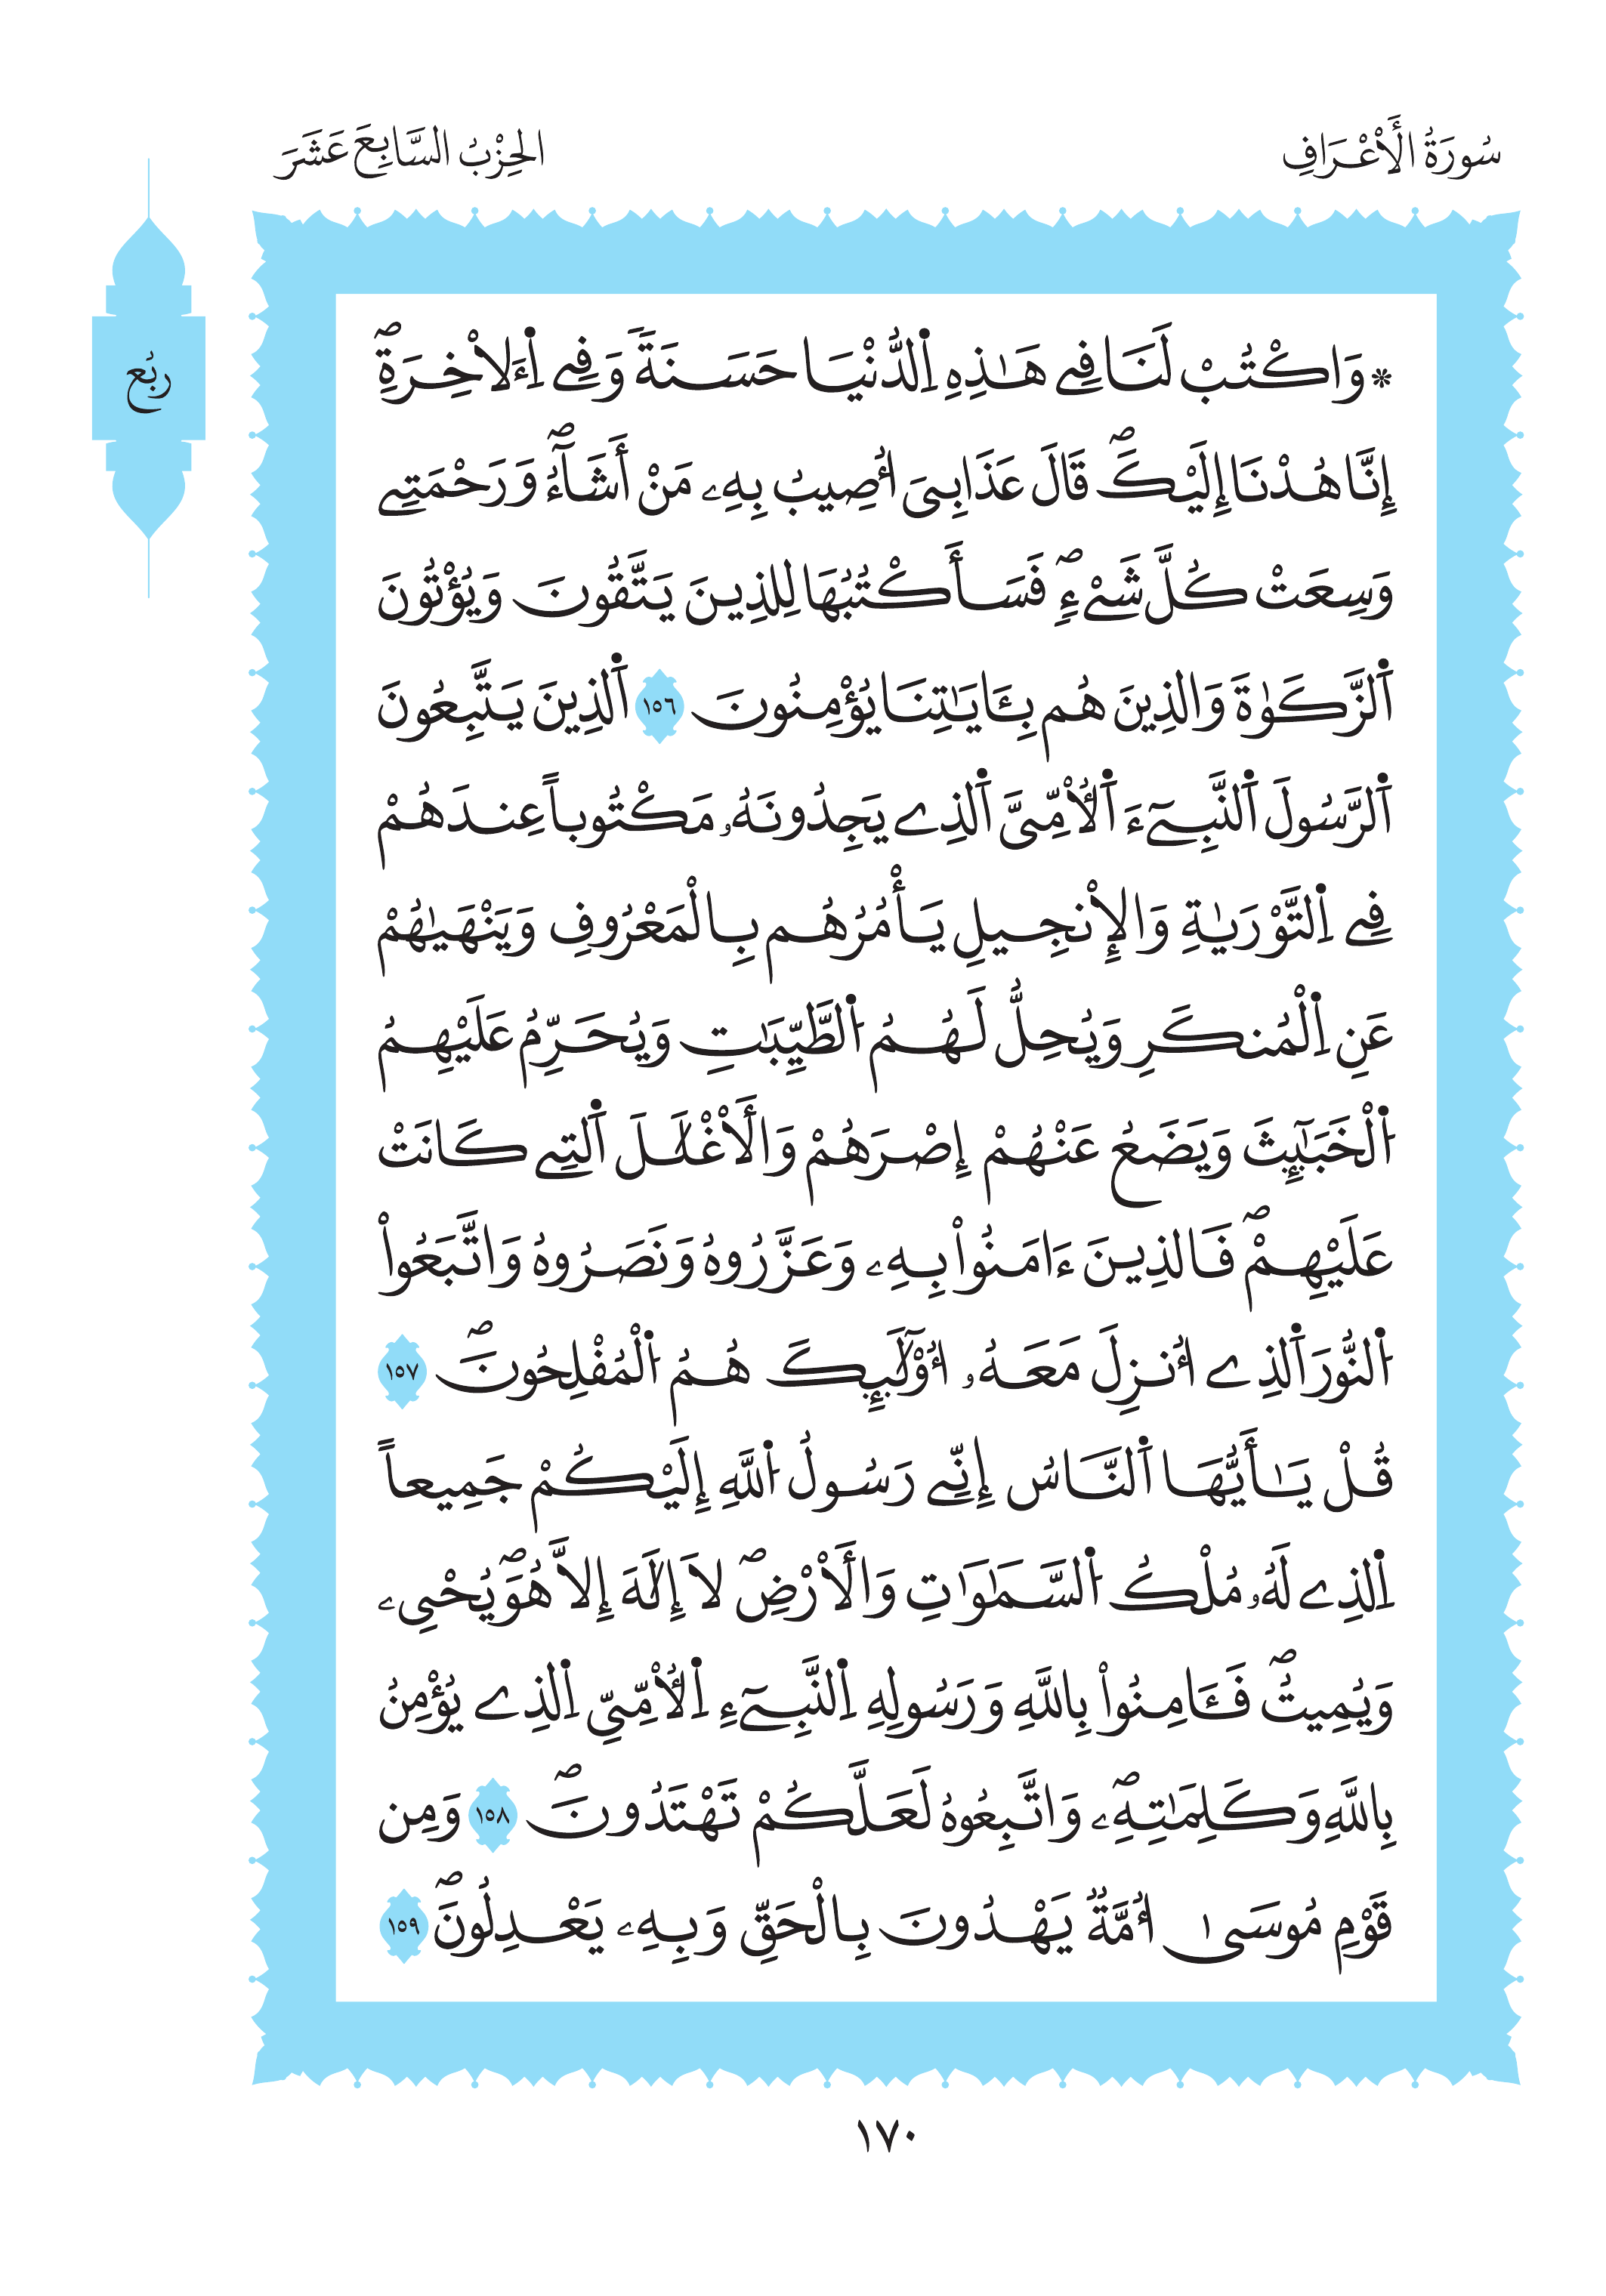 سُورَةُ الْأَعْرَافِ
الحِزْبُ السَّابِعَ عَشَرَ
رُبُع
* وَاكْتُبْ لَنَا فِے هَٰذِهِ اِ۬لدُّنْيَا حَسَنَةٗ وَفِے اِ۬ءَلَاخِرَةِۖ
إِنَّا هُدْنَا إِلَيْكَۖ قَالَ عَذَابِيَ أُصِيبُ بِهِۦ مَنْ أَشَآءُۖ وَرَحْمَتِے
وَسِعَتْ كُلَّ شَےْءٖۖ فَسَأَكْتُبُهَا لِلذِينَ يَتَّقُونَ وَيُؤْتُونَ
اَ۬لزَّكَوٰةَ وَالذِينَ هُم بِـَٔايَٰتِنَا يُؤْمِنُونَ ١٥٦ اَ۬لذِينَ يَتَّبِعُونَ
اَ۬لرَّسُولَ اَ۬لنَّبِےٓءَ اَ۬لُامِّيَّ اَ۬لذِے يَجِدُونَهُۥ مَكْتُوباً عِندَهُمْ
فِے اِ۬لتَّوْرَيٰةِ وَالْإِنْجِيلِ يَأْمُرُهُم بِالْمَعْرُوفِ وَيَنْهَيٰهُمْ
عَنِ اِ۬لْمُنكَرِ وَيُحِلُّ لَهُمُ اُ۬لطَّيِّبَٰتِ وَيُحَرِّمُ عَلَيْهِمُ
اُ۬لْخَبَٰٓئِثَ وَيَضَعُ عَنْهُمْ إِصْرَهُمْ وَالْأَغْلَٰلَ اَ۬لتِے كَانَتْ
عَلَيْهِمْۖ فَالذِينَ ءَامَنُواْ بِهِۦ وَعَزَّرُوهُ وَنَصَرُوهُ وَاتَّبَعُواْ
اُ۬لنُّورَ اَ۬لذِے أُنزِلَ مَعَهُۥ أُوْلَٰٓئِكَ هُمُ اُ۬لْمُفْلِحُونَۖ ١٥٧
قُلْ يَٰأَيُّهَا اَ۬لنَّاسُ إِنِّے رَسُولُ اُ۬للَّهِ إِلَيْكُمْ جَمِيعاً
اِ۬لذِے لَهُۥ مُلْكُ اُ۬لسَّمَٰوَٰتِ وَالْأَرْضِۖ لَا إِلَٰهَ إِلَّا هُوَۖ يُحْيِۦ
وَيُمِيتُۖ فَـَٔامِنُواْ بِاللَّهِ وَرَسُولِهِ اِ۬لنَّبِےٓءِ اِ۬لُامِّيِّ اِ۬لذِے يُؤْمِنُ
بِاللَّهِ وَكَلِمَٰتِهِۦۖ وَاتَّبِعُوهُ لَعَلَّكُمْ تَهْتَدُونَۖ ١٥٨ وَمِن
قَوْمِ مُوسَىٰ أُمَّةٞ يَهْدُونَ بِالْحَقِّ وَبِهِۦ يَعْدِلُونَۖ ١٥٩
١٧٠